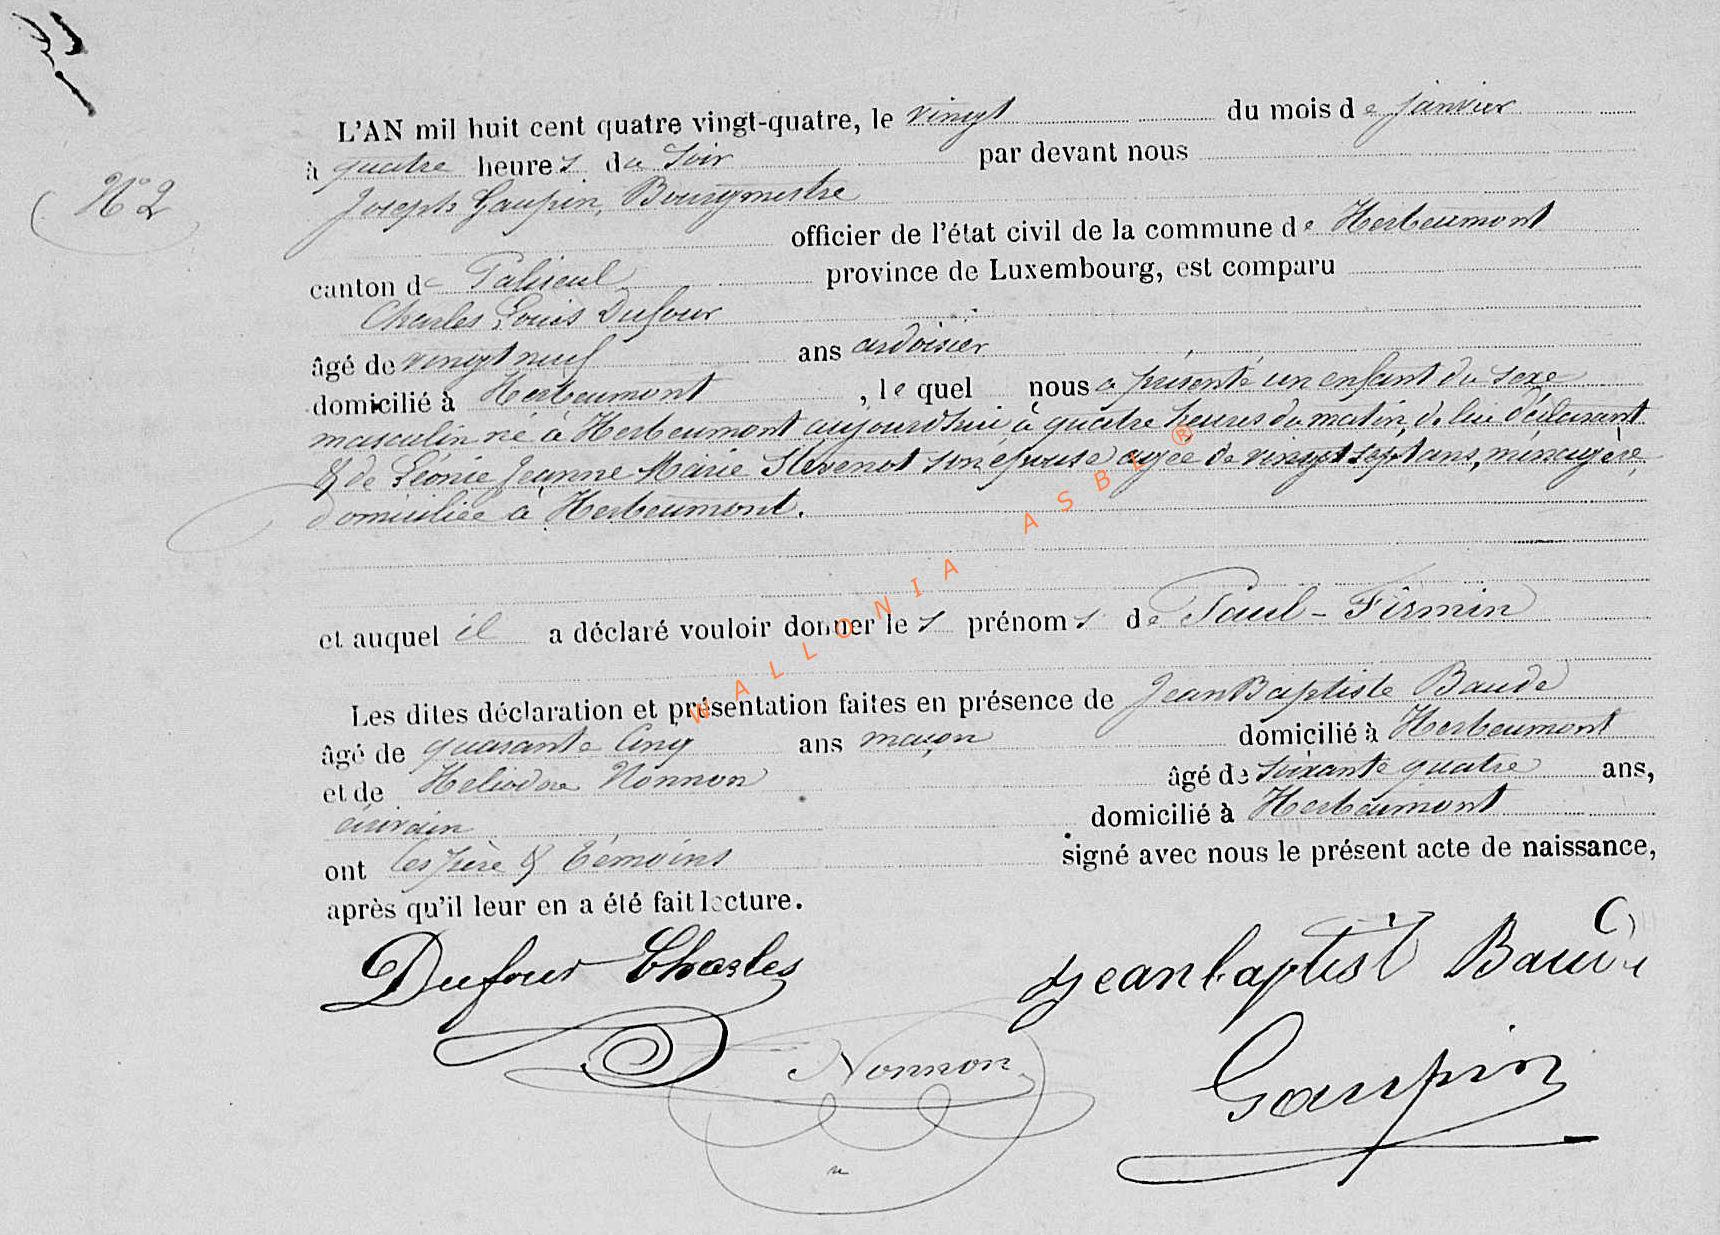 L'AN mil huit cent quatre vingt-quatre, le vingt du mois de janvier
N° 2
à quatre heures du soir par devant nous
Joseph Gaupin, Bourgmestre
officier de l'état civil de la commune de Herbeumont
canton de Paliseul province de Luxembourg, est comparu
Charles Louis Dufour
âgé de vingt neuf ans ardoisier
domicilié à Herbeumont, lequel nous a présenté un enfant du sexe
masculin né à Herbeumont aujourd'hui à quatre heures du matin, de lui déclarant
& de Léonie Jeanne Marie Stevenot son épouse agée de vingt sept ans, ménagère,
domiciliée à Herbeumont.
et auquel il a déclaré vouloir donner les prénoms de Paul-Firmin
Les dites déclaration et présentation faites en présence de Jean Baptiste Baude
âgé de quarante cinq ans maçon domicilié à Herbeumont
et de Heliodore Nonnon âgé de soixante quatre ans,
écrivain domicilié à Herbeumont
ont les père & témoins signé avec nous le présent acte de naissance,
après qu'il leur en a été fait lecture.
Dufour Charles
Jean baptist Baude
Nonnon
Gaupin
WALLONIA ASBL ®